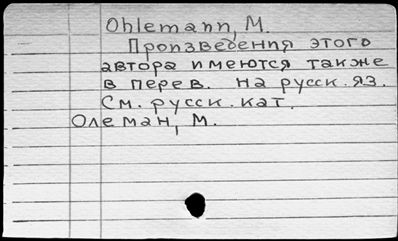 Ohlemann, M.
Произведения этого
автора имеются также
в перев. на русск. яз.
См. русск. кат.
Олеман, М.